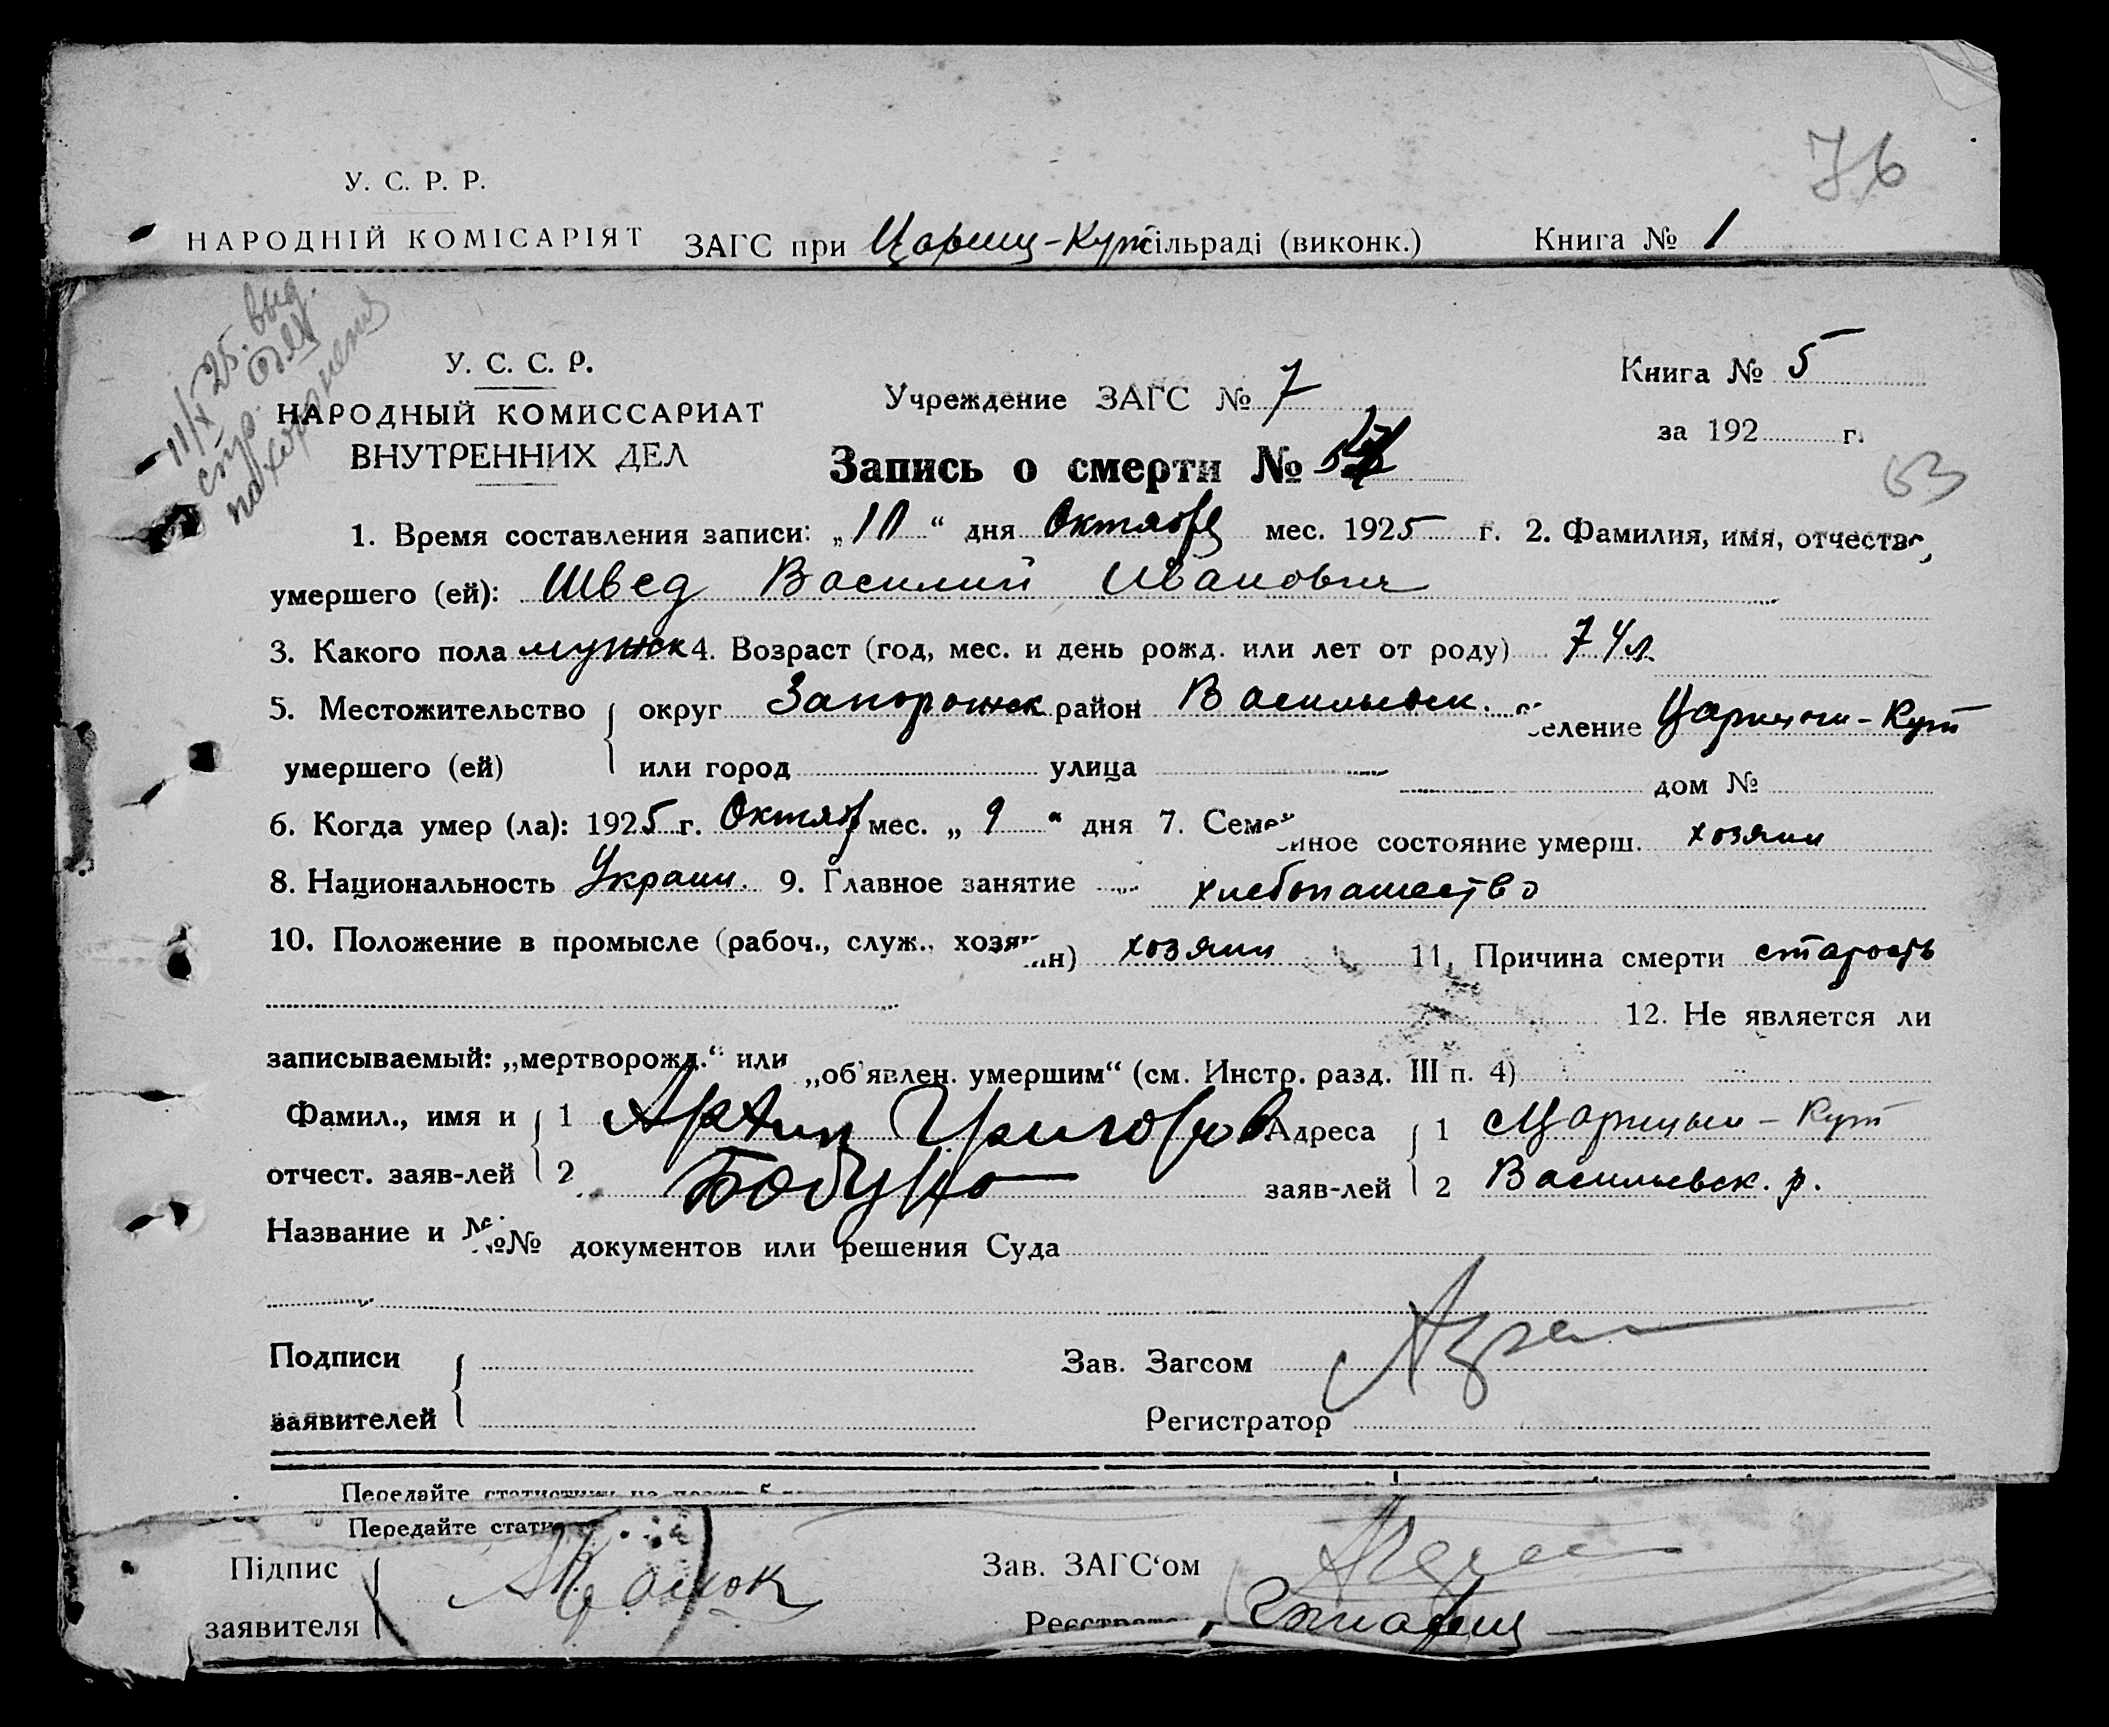 76
У. С. Р. Р.
НАРОДНІЙ КОМІСАРІЯТ ЗАГС при Цариц-Кут сільраді (виконк.) Книга № 1
11/X 25. выд.
стр.
похоронения
У. С. С. Р.
НАРОДНЫЙ КОМИССАРИАТ
ВНУТРЕННИХ ДЕЛ
Учреждение ЗАГС № 7
Книга № 5
за 192 г.
Запись о смерти №
53
1. Время составления записи: „10“ дня Октября мес. 1925 г. 2. Фамилия, имя, отчество,
умершего (ей): Швед Василий Иванович
3. Какого пола мужск 4. Возраст (год, мес. и день рожд. или лет от роду) 74 л.
5. Местожительство умершего (ей) { округ Запорожск район Васильевск. селение Царицын-Кут
или город улица дом №
6. Когда умер (ла): 1925 г. Октяб мес. „9“ дня 7. Семейное состояние умерш. хозяин
8. Национальность Украин. 9. Главное занятие хлебопашество
10. Положение в промысле (рабоч., служ., хозяин) хозяин 11. Причина смерти старость
12. Не является ли
записываемый: „мертворожд.“ или „об'явлен. умершим“ (см. Инстр. разд. III п. 4)
Фамил., имя и { 1 Григоров Адреса { 1 Царицын-Кут
отчест. заяв-лей 2 заяв-лей 2 Васильевск. р.
Название и №№ документов или решения Суда
Подписи Зав. Загсом
заявителей Регистратор
Передайте
Передайте стати
Підпис Зав. ЗАГС‘ом
заявителя Реєстрато